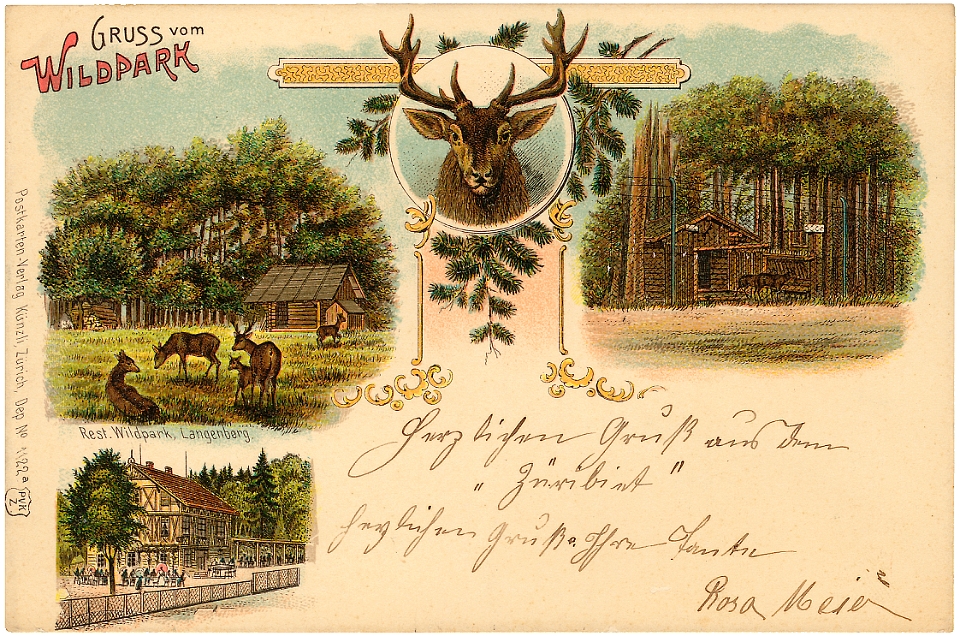 GRUSS VOM
WILDPARK
Rest. Wildpark, Langenberg.
Postkarten-Verlag Künzli Zürich, Dep No 1122a
PVK
Z.
Herzlichen Gruß aus dem
"Züribiet"
herzlichen Gruß Ihre Tante
Rosa Meier